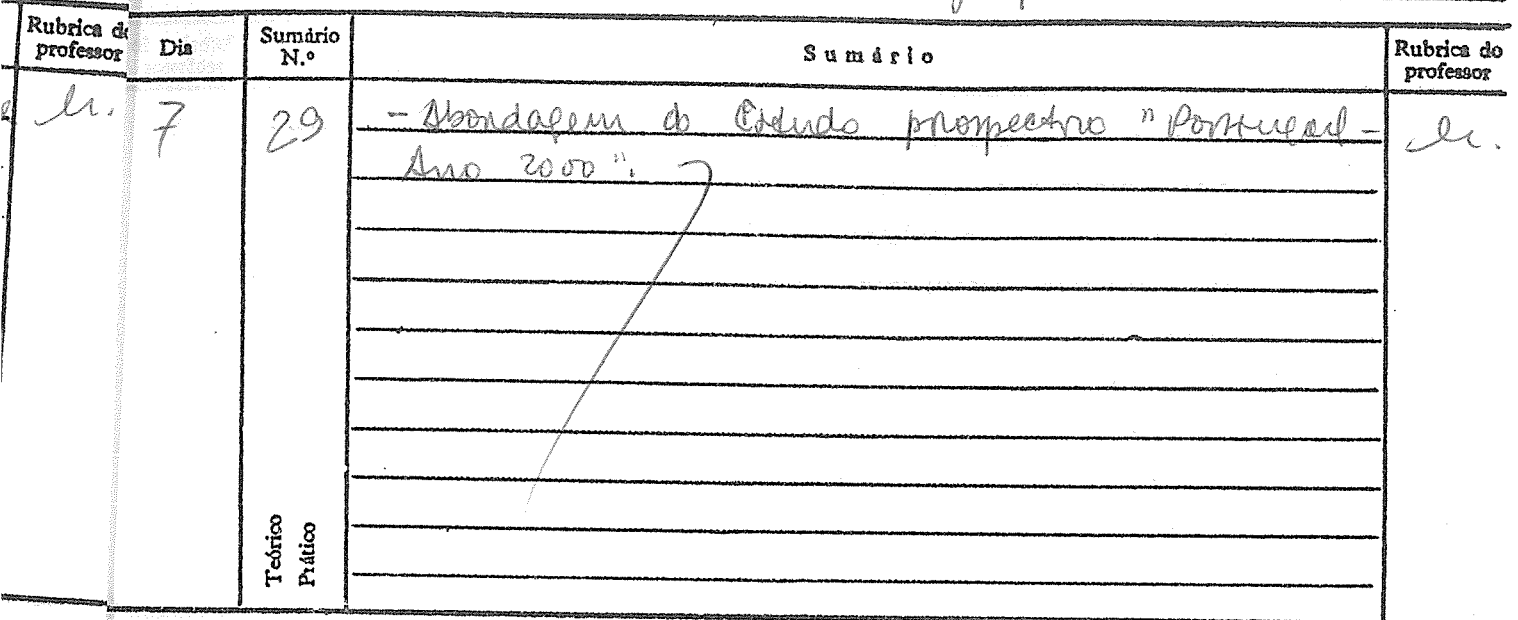 Rubrica do
professor
Dia
Sumário
N.º
Sumário
Rubrica do
professor
7
29
- Abordagem do Estudo prospectivo "Portugal -
Ano 2000".
Teórico
Prático